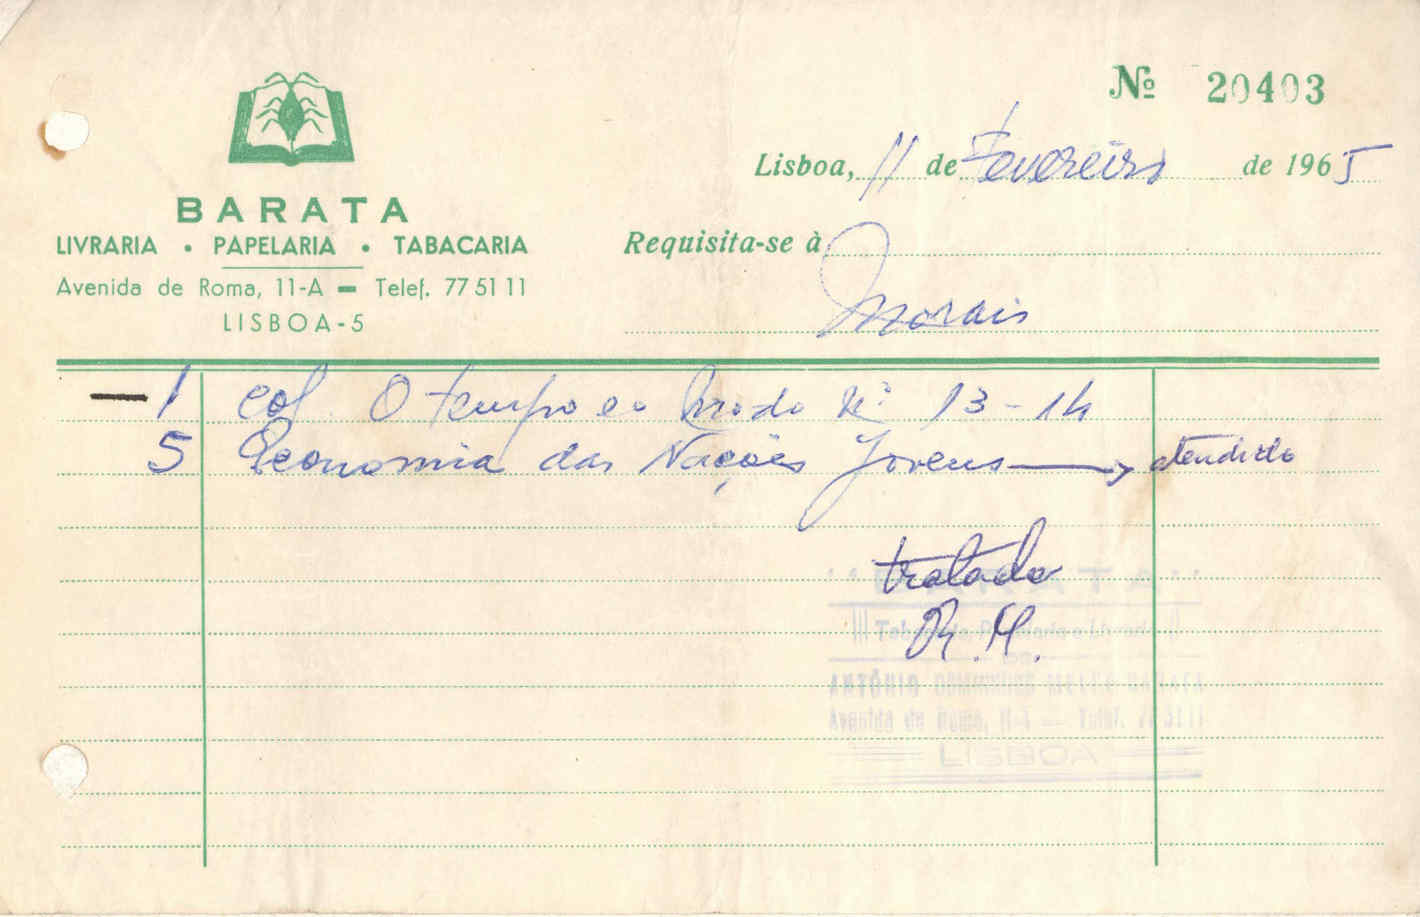 Nº 20403
Lisboa, 11 de Fevereiro de 1965
BARATA
LIVRARIA • PAPELARIA • TABACARIA
Avenida de Roma, 11-A — Telef. 77 51 11
LISBOA-5
Requisita-se à
Morais
— 1 col. O tempo e o Modo Nº 13 - 14
5 Economia das Nações Jovens → atendido
tratado
R.M.
BARATA
Tabacaria, Papelaria e Livraria
DE
ANTÓNIO BARATA
Avenida de Roma, 11-A — Telef. 77 51 11
LISBOA